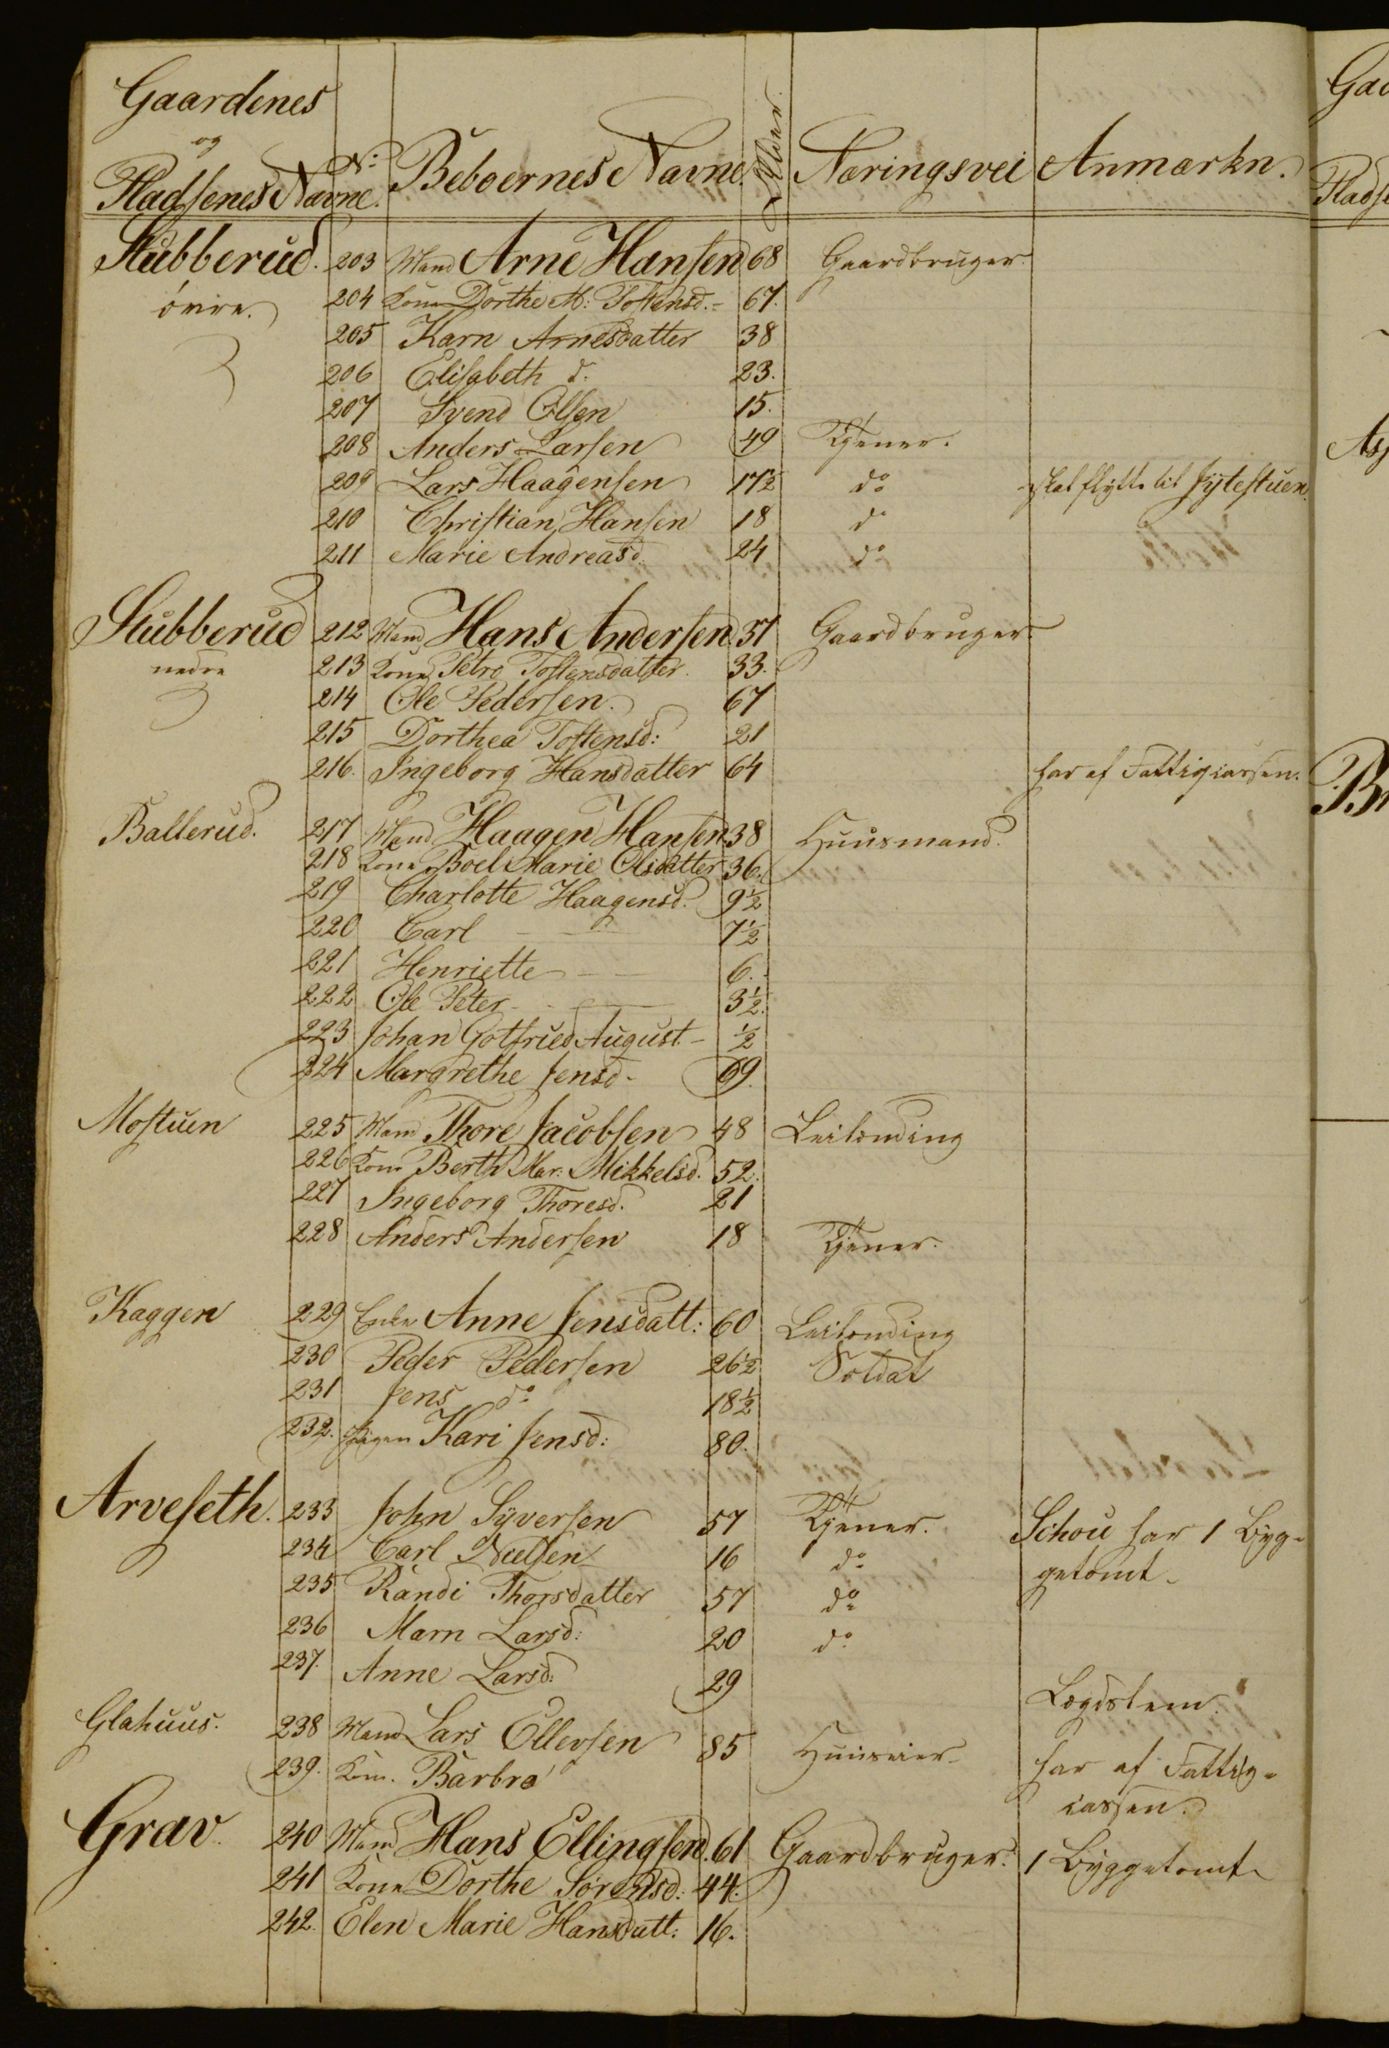 Gaardenes
og
Pladsenes Navne. No: Beboernes Navne. Alder. Næringsvei Anmærkn.
Stubberud. 203 Mand Arne Hansen 68 Gaardbruger.
övre. 204 Kone Dorthe M: Tostensd. - 67.
205 Karn Arnesdatter 38
206 Elisabeth d. 23.
207 Svend Olsen 15.
208 Anders Larsen 49 Tjener.
209 Lars Haagensen 17½ do skal flytte til
210 Christian Hansen 18 do
211 Marie Andreasd. 24 do
Stubberud 212 Mand Hans Andersen. 37 Gaardbruger.
nedre 213 Kone Petro Tostensdatter. 33.
214 Ole Pedersen. 67
215 Dorthea Tostensd: 21
216. Ingeborg Hansdatter 64 har af Fattigcassen.
Ballerud. 217 Mand Haagen Hansen 38 Huusmand.
218 Kone Boel Marie Olsdatter 36.
219 Charlotte Haagensd. 9½
220 Carl — — 7½
221 Henriette — — 6.
222 Ole Peter — — 3½.
223 Johan Gotfried August - ½
224 Margrethe Jensd - 69.
Mostuen 225 Mand Thore Jacobsen 48 Leilending
226 Kone Berth Mar: Mikkelsd. 52.
227 Ingeborg Thoresd. 21
228 Anders Andersen 18 Tjener.
Kaggen 229 Enke Anne Jensdatt: 60 Leilending
230 Peder Pedersen 26½ Soldat
231 Jens do 18½
232. Pigen Kari Jensd: 80.
Arveseth. 233 John Syversen 57 Tjener. Schou har 1 Byg-
234 Carl Nielsen 16 do getomt -
235 Randi Thorsdatter 57 do
236 Marn Larsd: 20 do
237. Anne Larsd: 29
Lægdslem.
Glahuus. 238 Mand Lars Ellevsen 85 Huuseier - har af Fattig-
239. Kone. Barbro cassen.
Grav. 240 Mand Hans Ellingsen. 61 Gaardbruger. 1 Byggetomt
241 Kone Dorthe Sørensd: 44.
242. Elen Marie Hansdatt: 16.